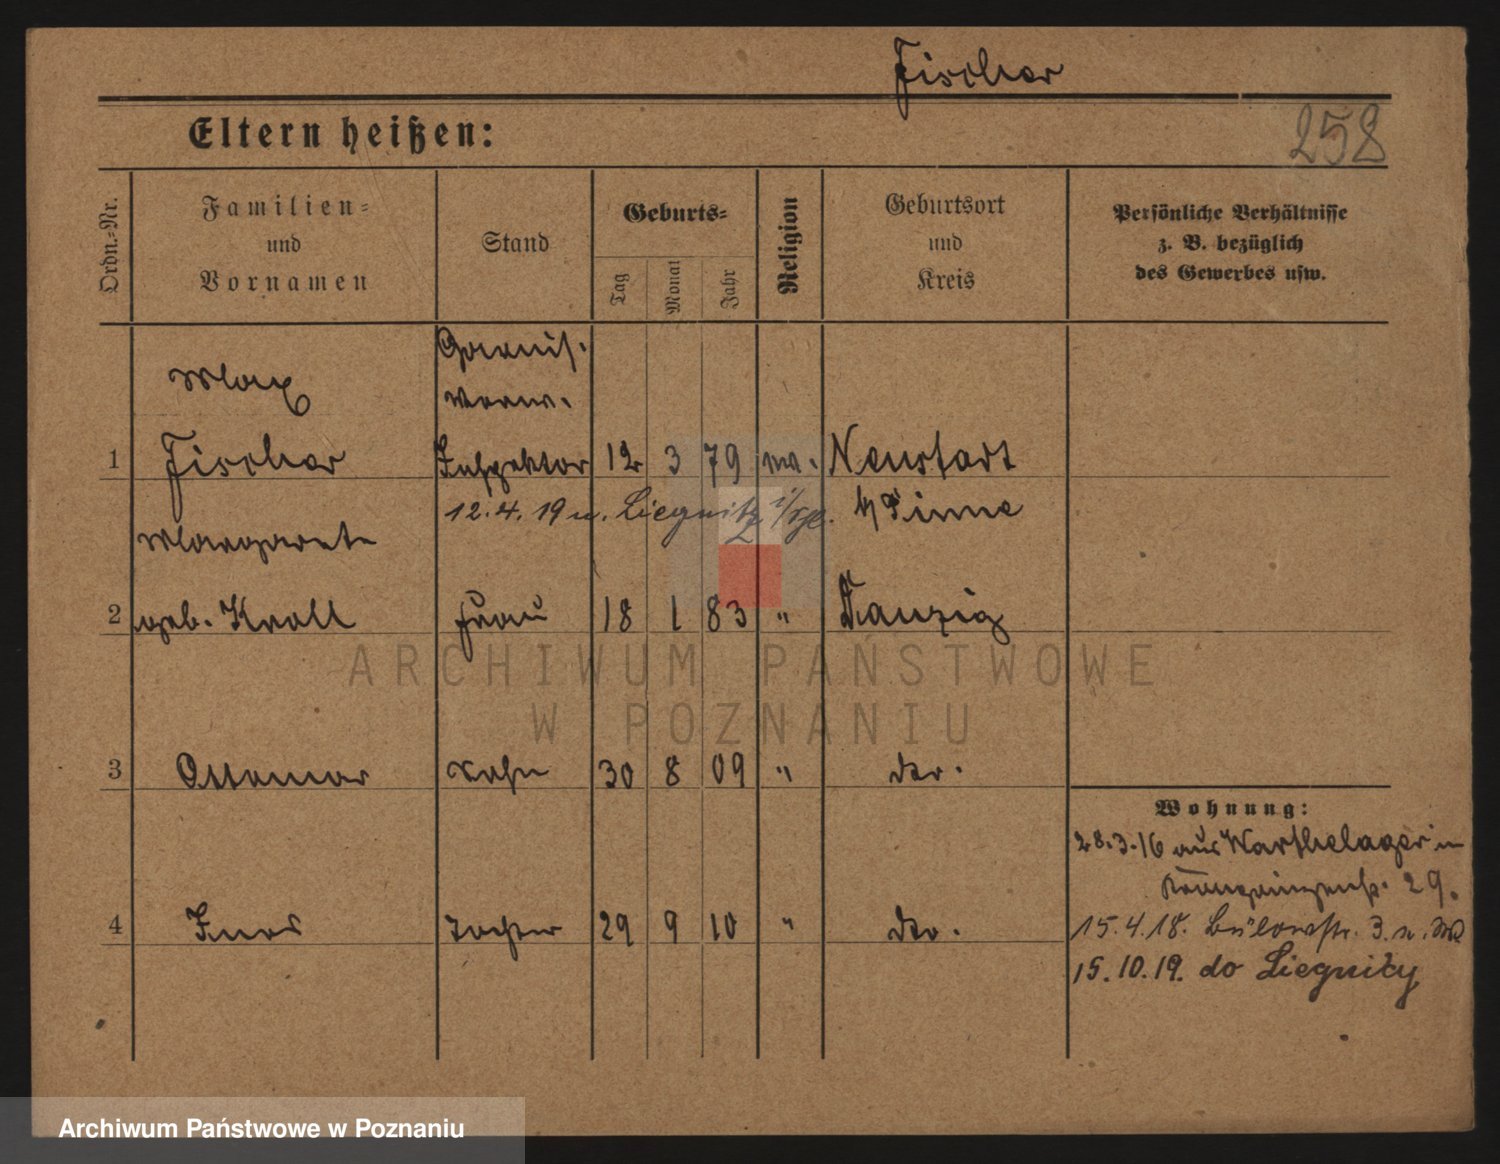 Fischer
258
Eltern heißen:
Ordn.-Nr.
Familien-
und
Vornamen
Stand
Geburts-
Tag
Monat
Jahr
Religion
Geburtsort
und
Kreis
Persönliche Verhältnisse
z. B. bezüglich
des Gewerbes usw.
Max
Garnis.
Verw.
1 Fischer Inspektor 12 3 79 Neustadt
12.4.19 n. Liegnitz
Pinne
Margarete
2 geb. Kroll Frau 18 1 83 " Danzig
ARCHIWUM PAŃSTWOWE
W POZNANIU
3 Ottomar Sohn 30 8 09 " do.
Wohnung:
28.3.16 aus Warthelager in
Kronprinzenstr. 29.
4 Ines Tochter 29 9 10 " do.
15.4.18. Bülowstr. 3.
15.10.19. do Liegnitz
Archiwum Państwowe w Poznaniu